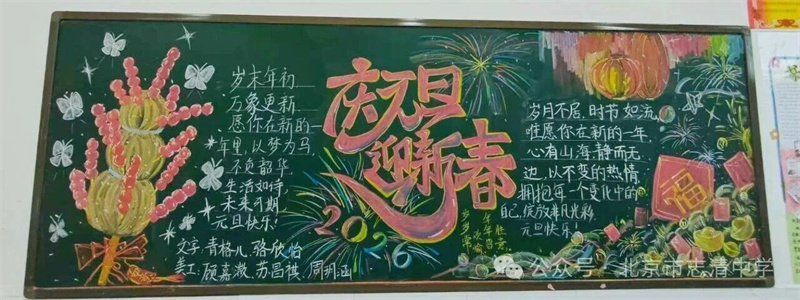 岁末年初
万象更新
愿你在新的一
年里,以梦为马
不负韶华
生活如诗,
未来可期
元旦快乐!
文字:青格儿 骆欣怡
美工:顾嘉溦 苏昌祺 周玥涵
庆元旦
迎新春
2026
岁月不居,时节如流
唯愿你在新的一年,
心有山海,静而无
边,以不变的热情
拥抱每一个变化中的
自己,绽放非凡光彩
元旦快乐!
福
公众号·北京市志清中学